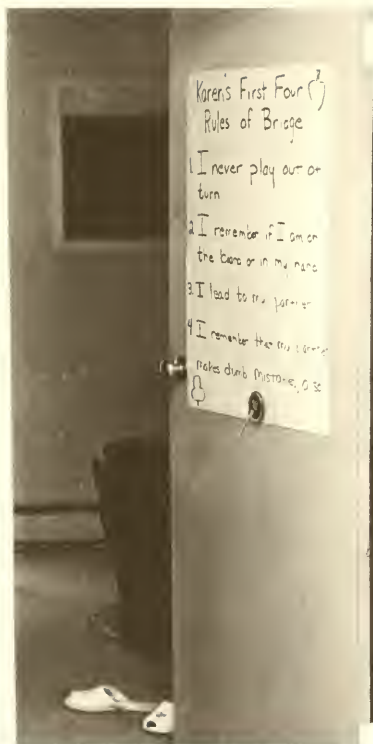 Karen's First Four (?)
Rules of Bridge
1. I never play out of
turn
2. I remember if I am on
the board or in my hand
3. I lead to my partner
4. I remember that my partner
makes dumb mistakes, also